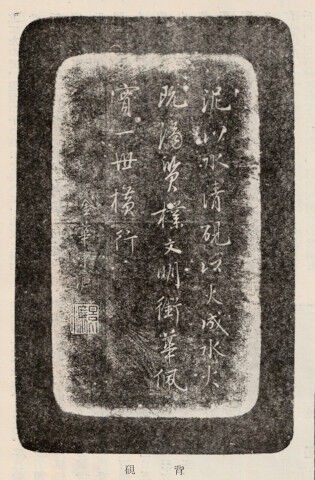 泥以水清硯以火成水火
既濟質樸文明銜華佩
實一世橫行
硯背